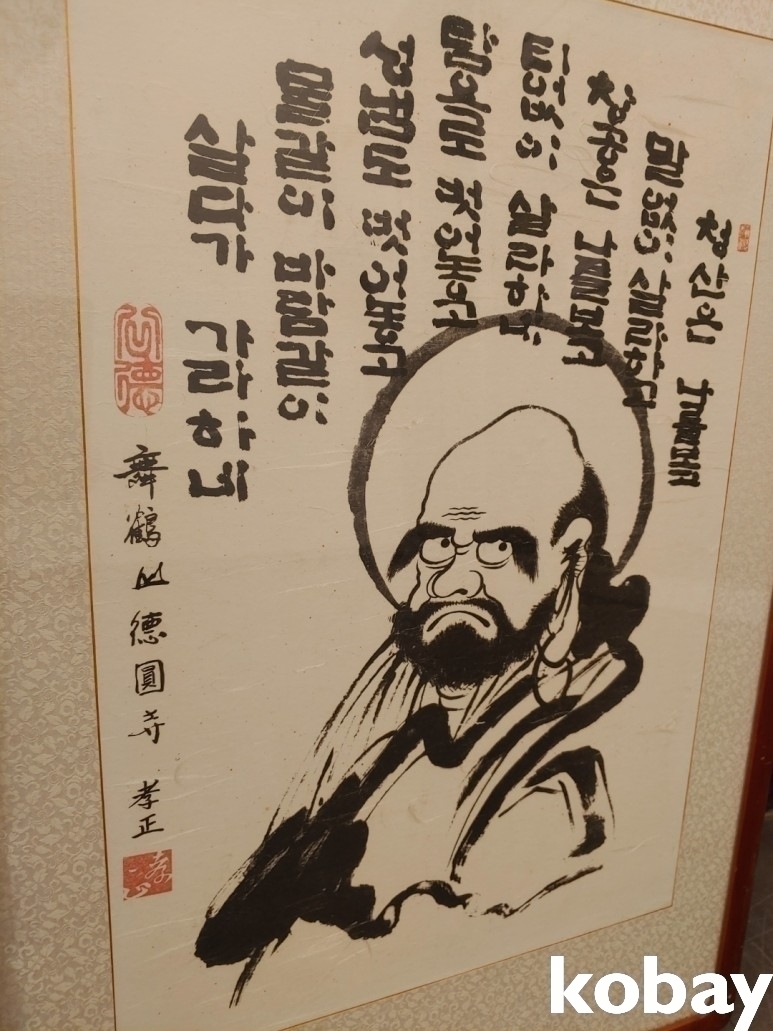 청산은 나를보고
말없이
창공은 나를보고
티없이 살라하네
벗어놓고
벗어놓고
물같이 바람같이
살다가 가라하네
舞鶴山德圓寺 孝正
kobay